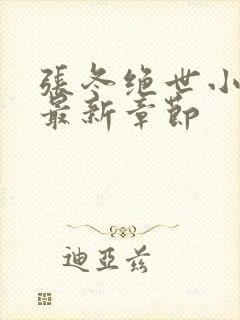 張冬绝世小
最新章節
迪亞茲